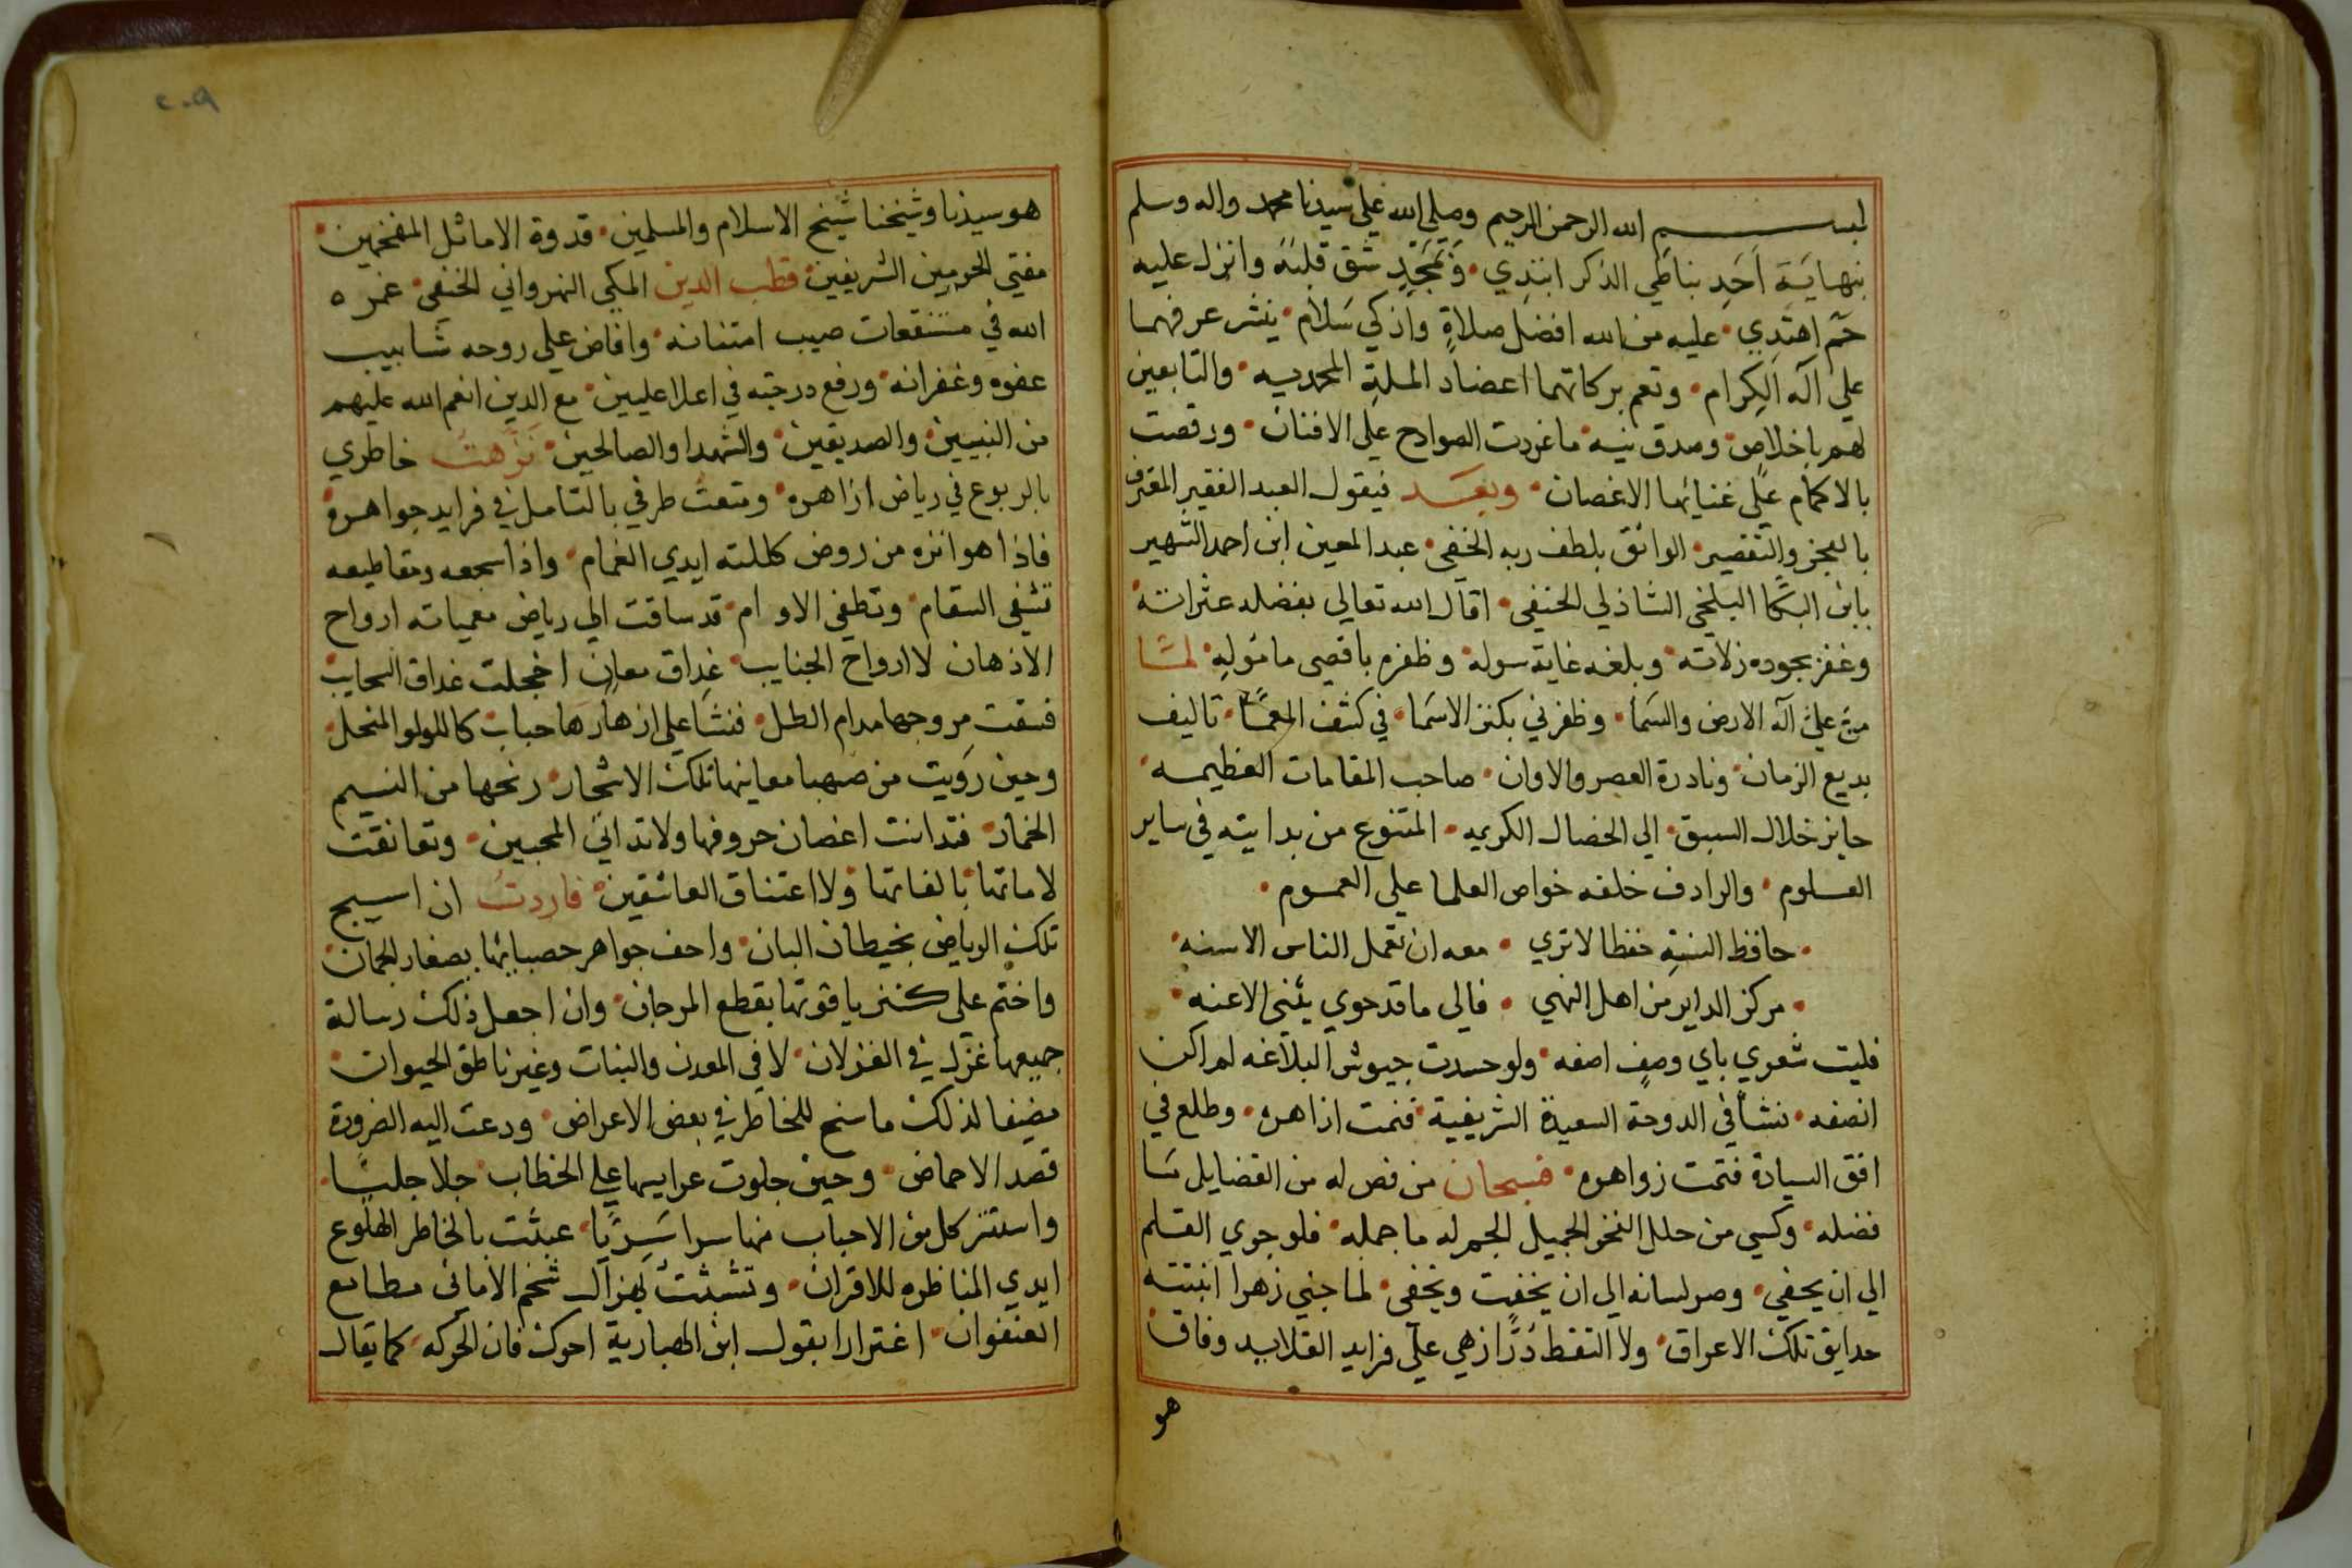 بسم الله الرحمن الرحيم وصلى الله علي سيدنا محمد واله وسلم
بنهاية احد بناطي الذكر ابتدي وبمجد شق قلبه وانزل عليه
حم اهتدي عليه من الله افضل صلاة وازكي سلام ينشر عرفهما
علي آله الكرام وتعم بركاتهما اعضاد الملة المحمديه والتابعين
لهم باخلاص وصدق نيه ما غردت الصوادح على الافنان ورقصت
بالاكمام على غنائها الاغصان وبعد فيقول العبد الفقير المقترف
بالعجز والتقصير الواثق بلطف ربه الخفي عبد المعين ابن احمد الشهير
بابن البكا البلخي الشاذلي الحنفي اقال الله تعالي بفضله عثراته
وغفر بجوده زلاته وبلغه غاية سوله وظفره باقصى مامولِه لمّا
منّ عليّ آله الارض والسما وظفرني بكنز الاسما في كشف المعمّا تاليف
بديع الزمان ونادرة العصر والاوان صاحب المقامات العظيمه
حايز خلال السبق الي الخصال الكريمه المتنوع من بدايته في ساير
العلوم والرادف خلفه خواص العلما علي العموم
حافظ السنة حفظا لا تري معه ان تعمل الناس الاسنه
مركز الداير من اهل النهي فالي ما قد حوي يثنى الاعنه
فليت شعري باي وصف اصفه ولو حسدت جيوش البلاغه لم اكن
انصفه نشأ في الدوحة السعيدة الشريفية فنمت ازاهره وطلع في
افق السيادة فتمت زواهره فسبحان من فص له من الفضايل سا
فضله وكسي من حلل النخو الجميل الجم له ما جمله فلو جري القلم
الي ان يحفي وصر لسانه الي ان يخفت ويخفى لما جني زهرا انبتته
حدايق تلك الاعراق ولا التقط دُرًّا زهي على فرايد القلايد وفاق
هو
٢٠٩
هو سيدنا وشيخنا شيخ الاسلام والمسلمين قدوة الاماثل المفخمين
مفتي الحرمين الشريفين قطب الدين المكي النهرواني الحنفي غمره
الله في مستنقعات صيب امتنانه وافاض علي روحه شابيب
عفوه وغفرانه ورفع درجته في اعلا عليين مع الذين انعم الله عليهم
من النبيين والصديقين والشهدا والصالحين نزهت خاطري
بالربوع في رياض ازاهره ومتعت طرفي بالتامل في فرايد جواهره
فاذا هو انزه من روض كللته ايدي الغمام واذا سجعه ومقاطيعه
تشفى السقام وتطفى الاوام قد ساقت الي رياض معمياته ارواح
الاذهان لا ارواح الجنايب غداق معان اخجلت غداق السحايب
فسقت مروجها مدام الطل فنشا علي ازهارها حباب كاللولو المنحل
وحين رويت من صهبا معاينها تلك الاشجار رنحها من النسيم
الخمار فتدانت اغصان حروفها ولا تداني المحبين وتعانقت
لاماتها بالفاتها ولا اعتناق العاشقين فاردت ان اسيج
تلك الرياض بخيطان البان واحف جواهر حصبايها بصغار الجمان
واختم على كنز ياقوتها بقطع المرجان وان اجعل ذلك رسالة
جميعها غزل في الغزلان لا في المعدن والنبات وغير ناطق الحيوان
مضيفا لذلك ما سنح للخاطر في بعض الاعراض ودعت اليه الضرورة
قصد الاحماض وحين جلوت عرايسها علي الخطاب جلا جليّا
واستنز كل من الاحباب منها سرا سَرِيًّا عبثت بالخاطر الهلوع
ايدي المناظره للاقران وتشبثت بهزال شخم الاماني مطامع
العنفوان اغترارا بقول ابن الهبارية احرك فان الحركه كما يقال